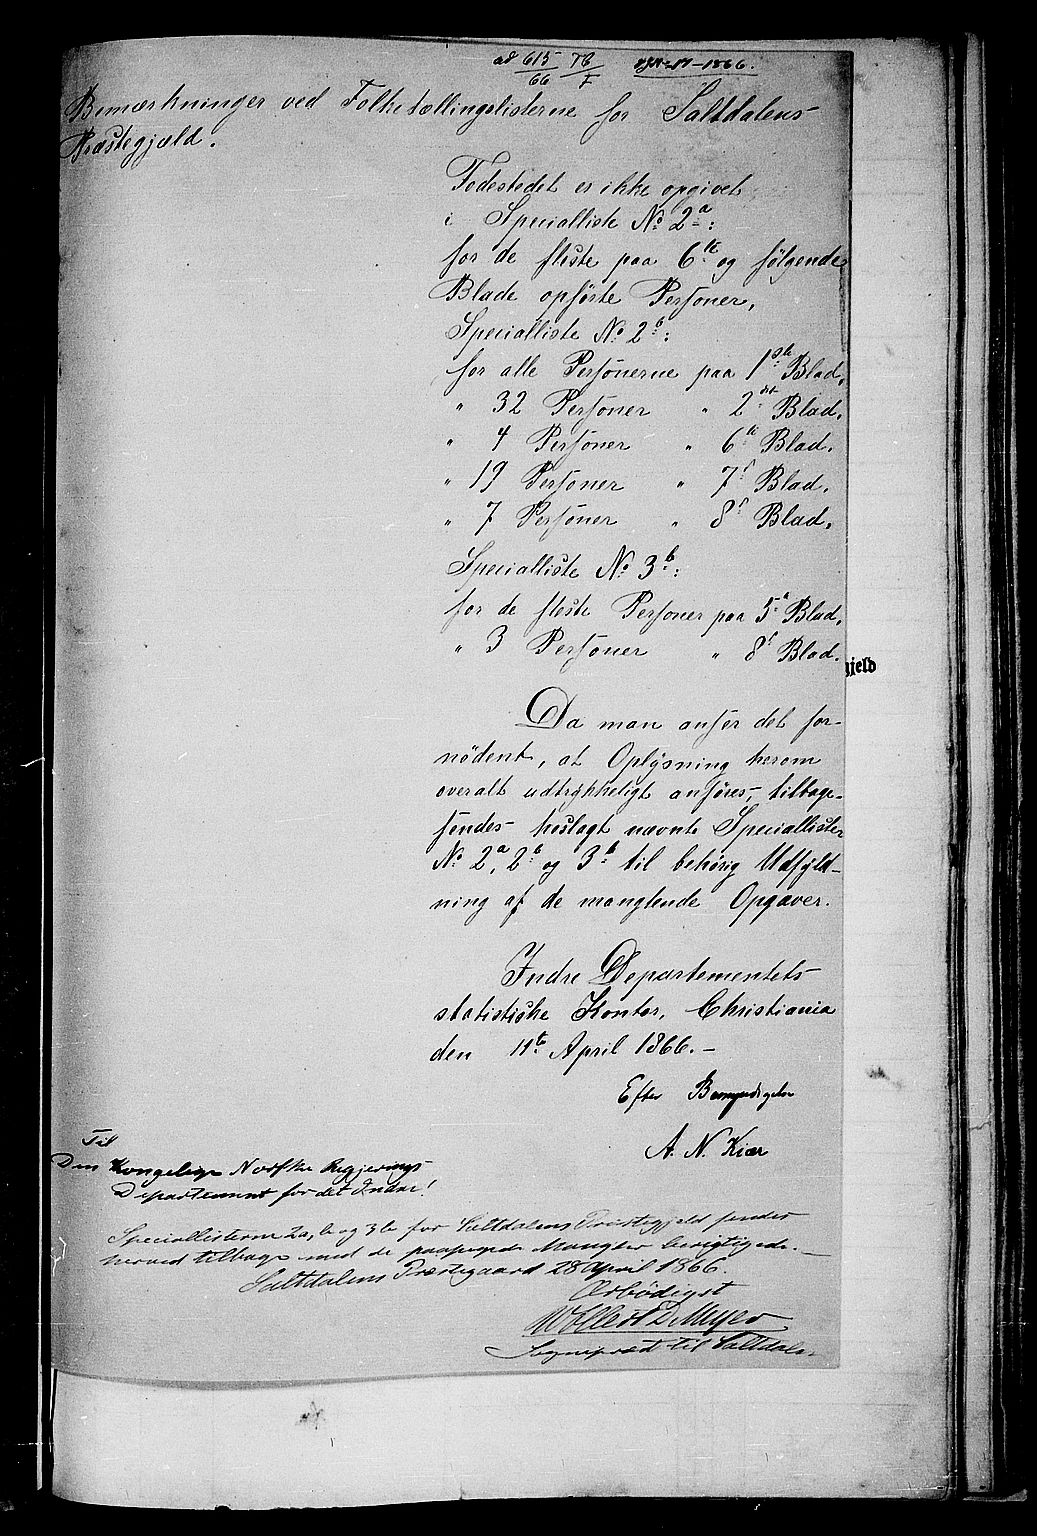 ad 615/66 76/F
Bemærkninger ved Folketællingslisterne for Saltdalens
Præstegjæld.
Fødestedet er ikke opgivet
i Specialliste No 2a:
for de fleste paa 6te og følgende
Blade opførte Personer,
Specialliste No 2b:
for alle Personerne paa 1ste Blad,
" 32 Personer " 2det Blad,
" 4 Personer " 6te Blad,
" 19 Personer " 7d Blad,
" 7 Personer " 8d Blad,
Specialliste No 3b:
for de fleste Personer paa 5te Blad,
" 3 Personer " 8d Blad.
gjeld
Da man anser det for-
nødent, at Oplysning herom
overalt udtrykkeligt anføres, tilbage-
sendes hoslagt nævnte Speciallister
No 2a, 2b og 3b til behørig Udfyld-
ning af de manglende Opgaver.
Indre Departementets
statistiske Kontor, Christiania
den 11te April 1866.-
Efter Bemyndigelse
A. N. Kiær
Til
Den Kongelige Norske Regjerings
Departement for det Indre!
Speciallisterne 2a, b og 3b for Saltdalens Præstegjeld sendes
herved tilbage med de paapegede Mangler berigtigede.-
Saltdalens Præstegaard 28 April 1866.
Ærbødigst
Wollert D Meyer
Sognepræst til Saltdalen